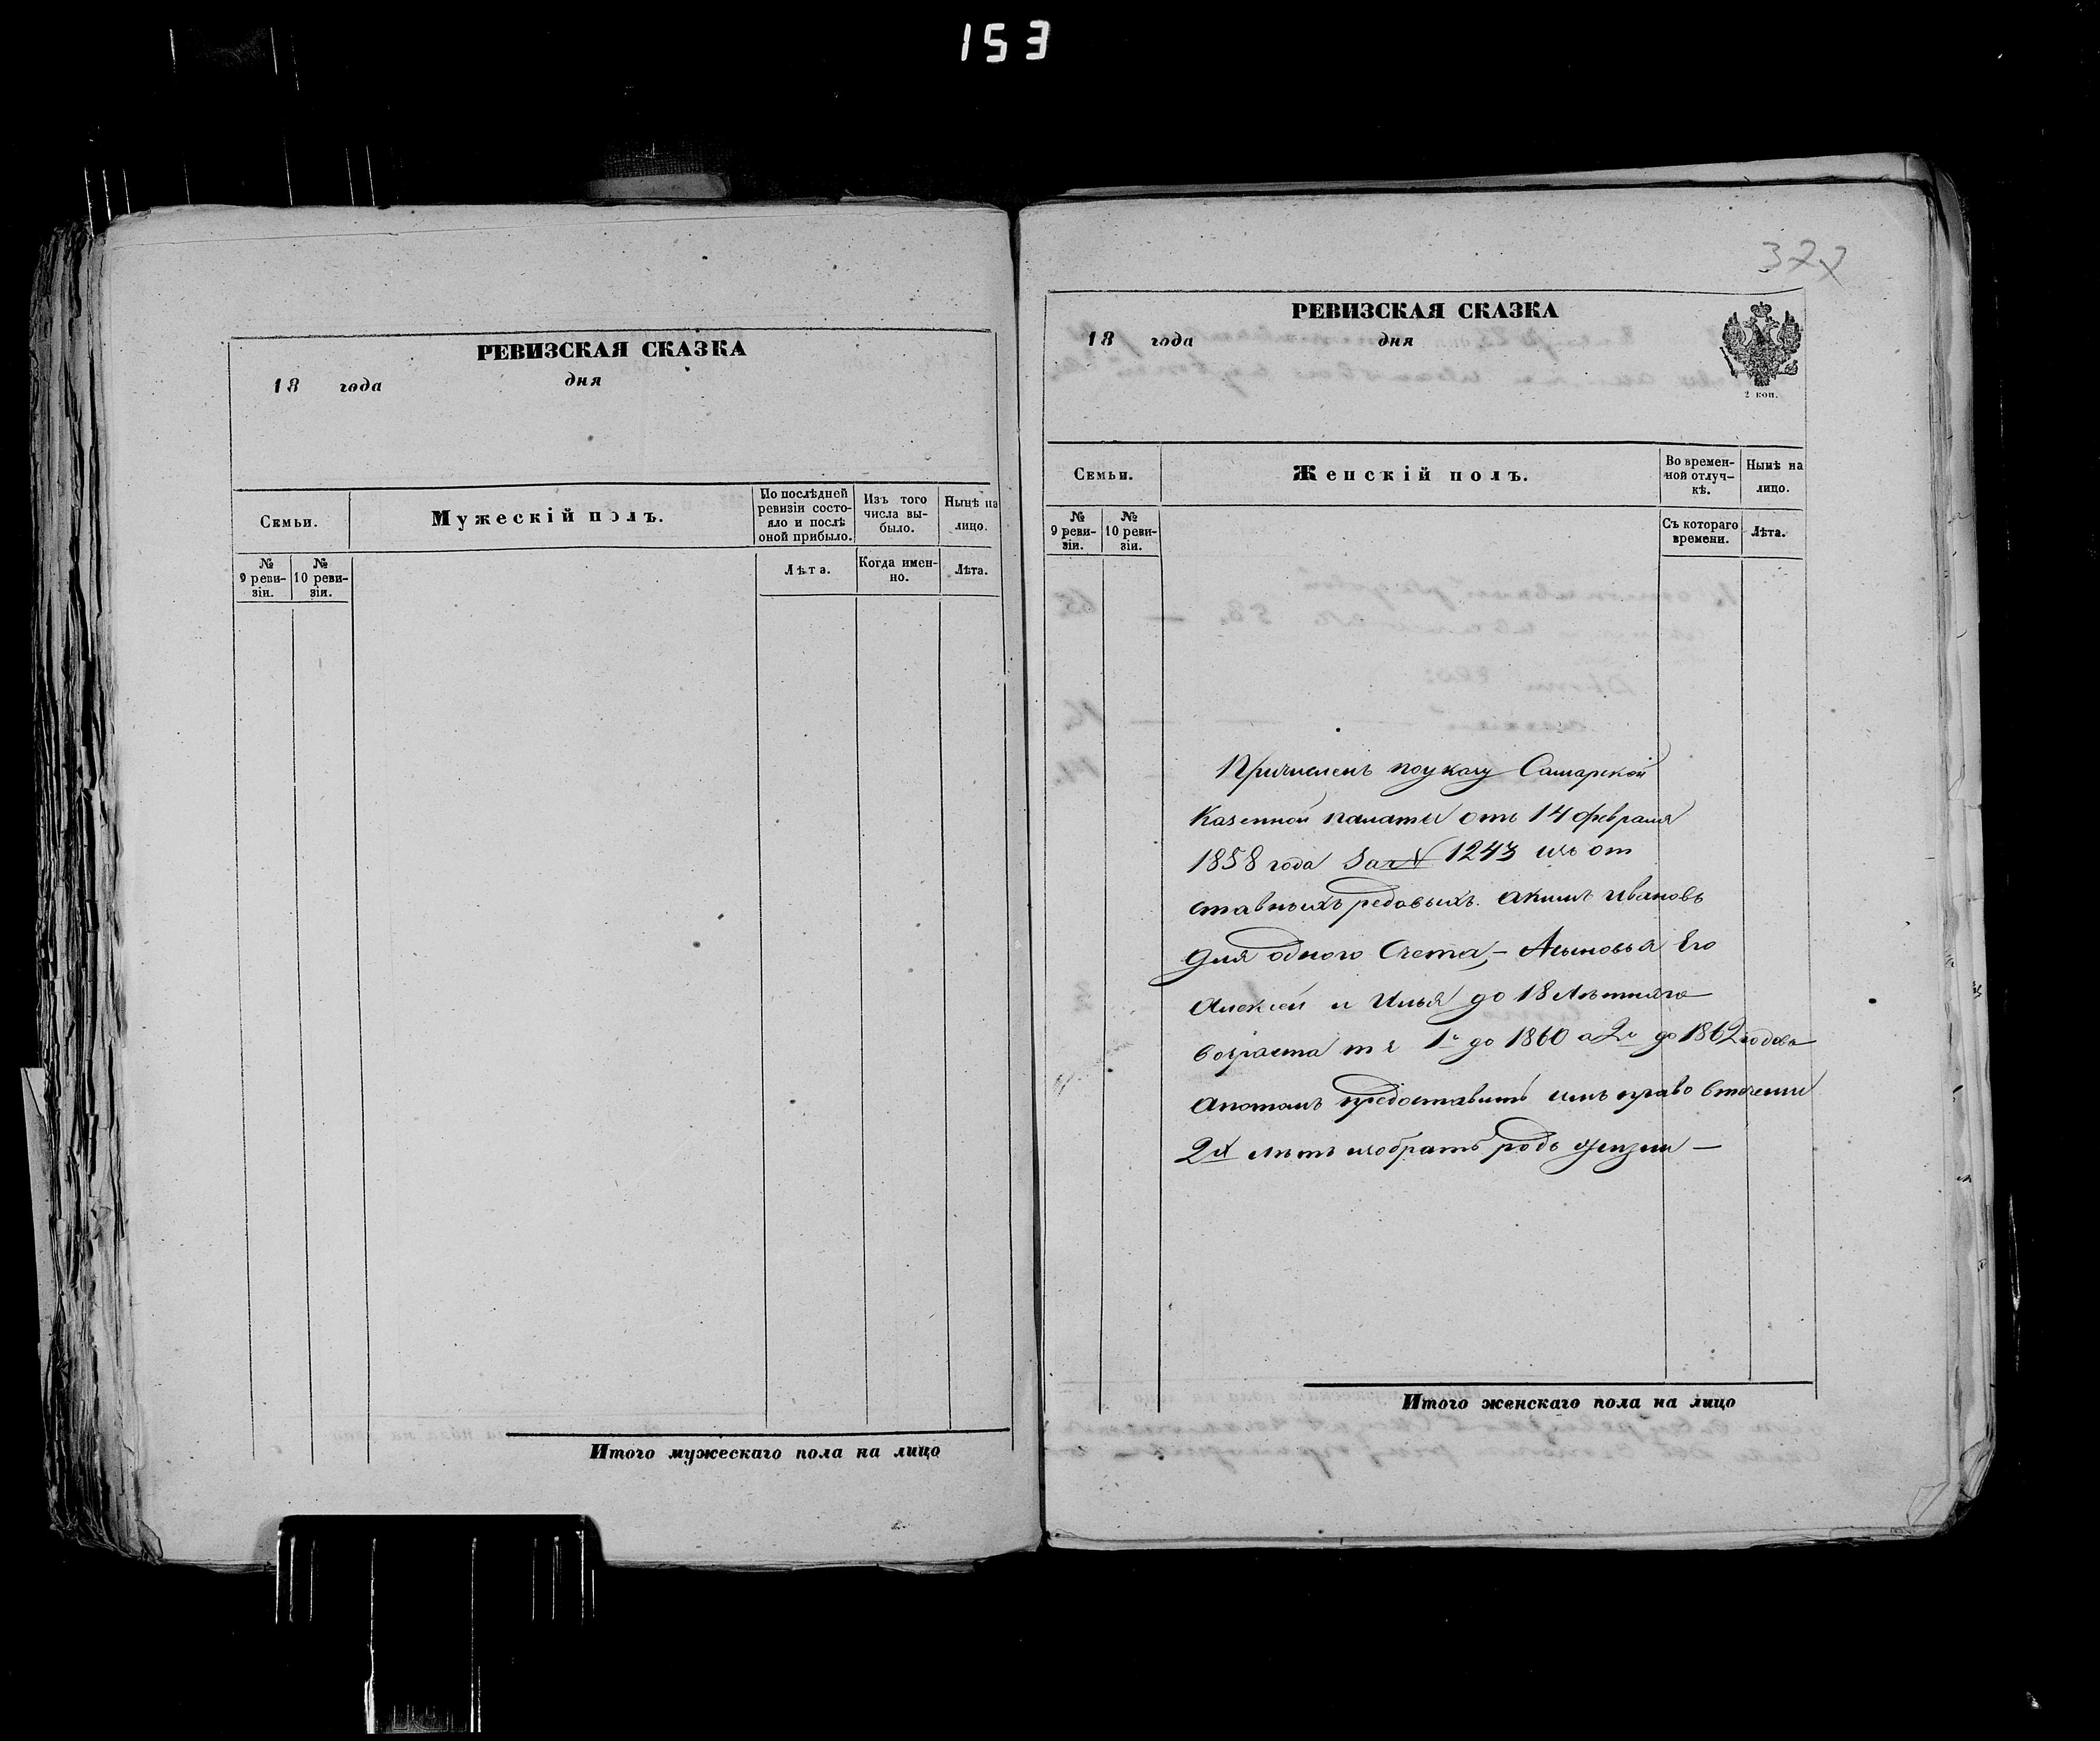 153
РЕВИЗСКАЯ СКАЗКА
18 года дня
Семьи.
Мужескій полъ.
По послѣдней ревизіи состояло и послѣ оной прибыло.
Изъ того числа выбыло.
Нынѣ на лицо.
№ 9 ревизіи.
№ 10 ревизіи.
Лѣта.
Когда именно.
Лѣта.
Итого мужескаго пола на лицо
322
РЕВИЗСКАЯ СКАЗКА
18 года дня
2 коп.
Семьи.
Женскій полъ.
Во временной отлучкѣ.
Нынѣ на лицо.
№ 9 ревизіи.
№ 10 ревизіи.
Съ котораго времени.
Лѣта.
Причисленъ поуказу Самарской
Казенной палаты отъ 14 февраля
1858 года За № 1243 изъ от
ставныхъ редовыхъ. Акимъ Ивановъ
для одного Счета, – Асыновья Его
Алексей и Илья до 18 Лѣтняго
возраста т е 1й до 1860 а 2й до 1862 годовъ
Апотомъ предоставить имъ право втечени
2х лѣтъ избрать родъ жизни –
Итого женскаго пола на лицо